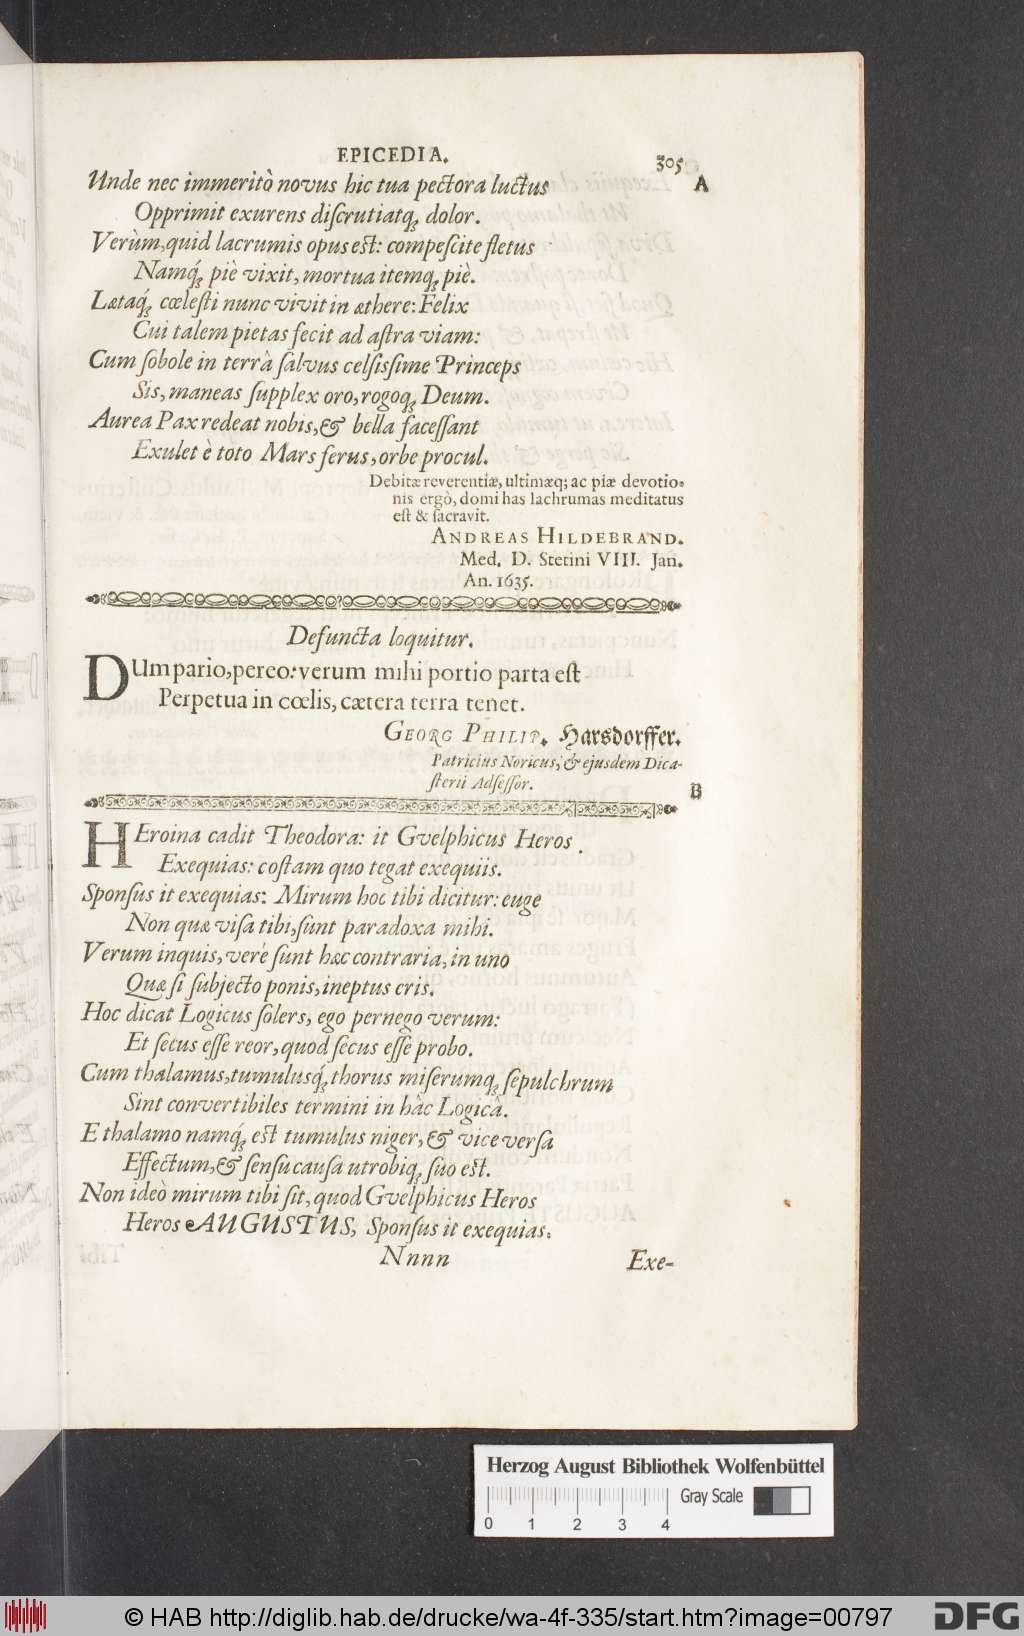 EPICEDIA. 305
Unde nec immeritò novus hic tua pectora luctus A
Opprimit exurens diſcrutiatq́ꝫ dolor.
Verùm, quid lacrumis opus eſt: compeſcite fletus
Namq́ꝫ piè vixit, mortua itemq́ꝫ piè.
Lætaq́ꝫ cœleſti nunc vivit in æthere: Felix
Cui talem pietas fecit ad aſtra viam:
Cum ſobole in terrâ ſalvus celſisſime Princeps
Sis, maneas ſupplex oro, rogoq́ꝫ Deum.
Aurea Pax redeat nobis, & bella faceſſant
Exulet è toto Mars ferus, orbe procul.
Debitæ reverentiæ, ultimæq; ac piæ devotio-
nis ergò, domi has lachrumas meditatus
eſt & ſacravit.
ANDREAS HILDEBRAND.
Med. D. Stetini VIII. Jan.
An. 1635.
Defuncta loquitur.
DUm pario, pereo: verum mihi portio parta eſt
Perpetua in cœlis, cætera terra tenet.
GEORG PHILIP. Harsdorffer.
Patricius Noricus, & ejusdem Dica-
ſterii Adſeſſor.
B
HEroina cadit Theodora: it Gvelphicus Heros
Exequias: coſtam quo tegat exequiis.
Sponſus it exequias: Mirum hoc tibi dicitur: euge
Non quæ viſa tibi, ſunt paradoxa mihi.
Verum inquis, verè ſunt hæc contraria, in uno
Quæ ſi ſubjecto ponis, ineptus eris.
Hoc dicat Logicus ſolers, ego pernego verum:
Et ſecus eſſe reor, quod ſecus eſſe probo.
Cum thalamus, tumulusq́ꝫ thorus miſerumq́ꝫ ſepulchrum
Sint convertibiles termini in hâc Logicâ.
E thalamo namq́ꝫ eſt tumulus niger, & vice verſa
Effectum, & ſenſu cauſa utrobiq́ꝫ ſuo eſt.
Non ideò mirum tibi ſit, quod Gvelphicus Heros
Heros AUGUSTUS, Sponſus it exequias.
Nnnn Exe-
Herzog August Bibliothek Wolfenbüttel
Gray Scale
0 1 2 3 4
© HAB http://diglib.hab.de/drucke/wa-4f-335/start.htm?image=00797 DFG